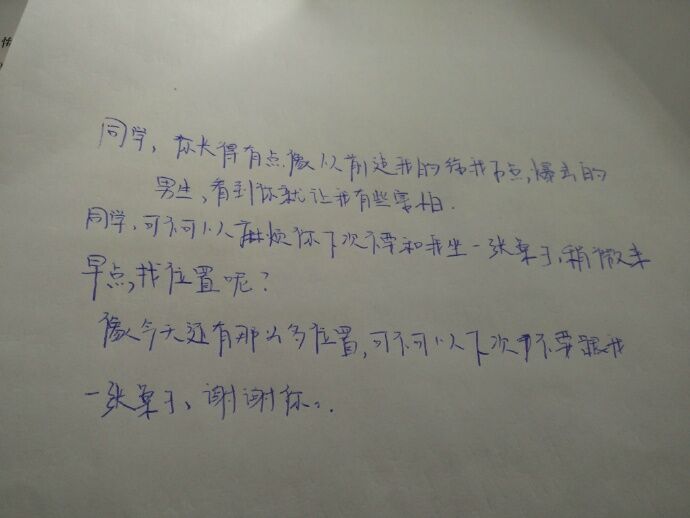 同学，你长得有点像以前追我的给我万点爆击的
男生，看到你就让我有些害怕.
同学，可不可以麻烦你下次不要和我坐一张桌子，稍微来
早点，找位置呢？
像今天还有那么多位置，可不可以下次不要跟我
一张桌子、谢谢你..